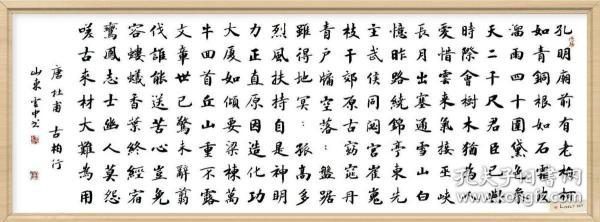 孔明廟前有老柏柯
如青銅根如石霜皮
溜雨四十圍黛色參
天二千尺君臣已與
時際會樹木猶為人
愛惜雲來氣接巫峽
長月出寒通雪山白
憶昨路繞錦亭東先
主武侯同閟宮崔嵬
枝幹郊原古窈窕丹
青戶牖空落:盤踞
雖得地冥:孤高多
烈風扶持自是神明
力正直原因造化功
大廈如傾要梁棟萬
牛回首丘山重不露
文章世已驚未辭翦
伐誰能送苦心豈免
容螻蟻香葉終經宿
鸞鳳志士幽人莫怨
嗟古來材大難為用
唐杜甫古柏行
山東雲中书